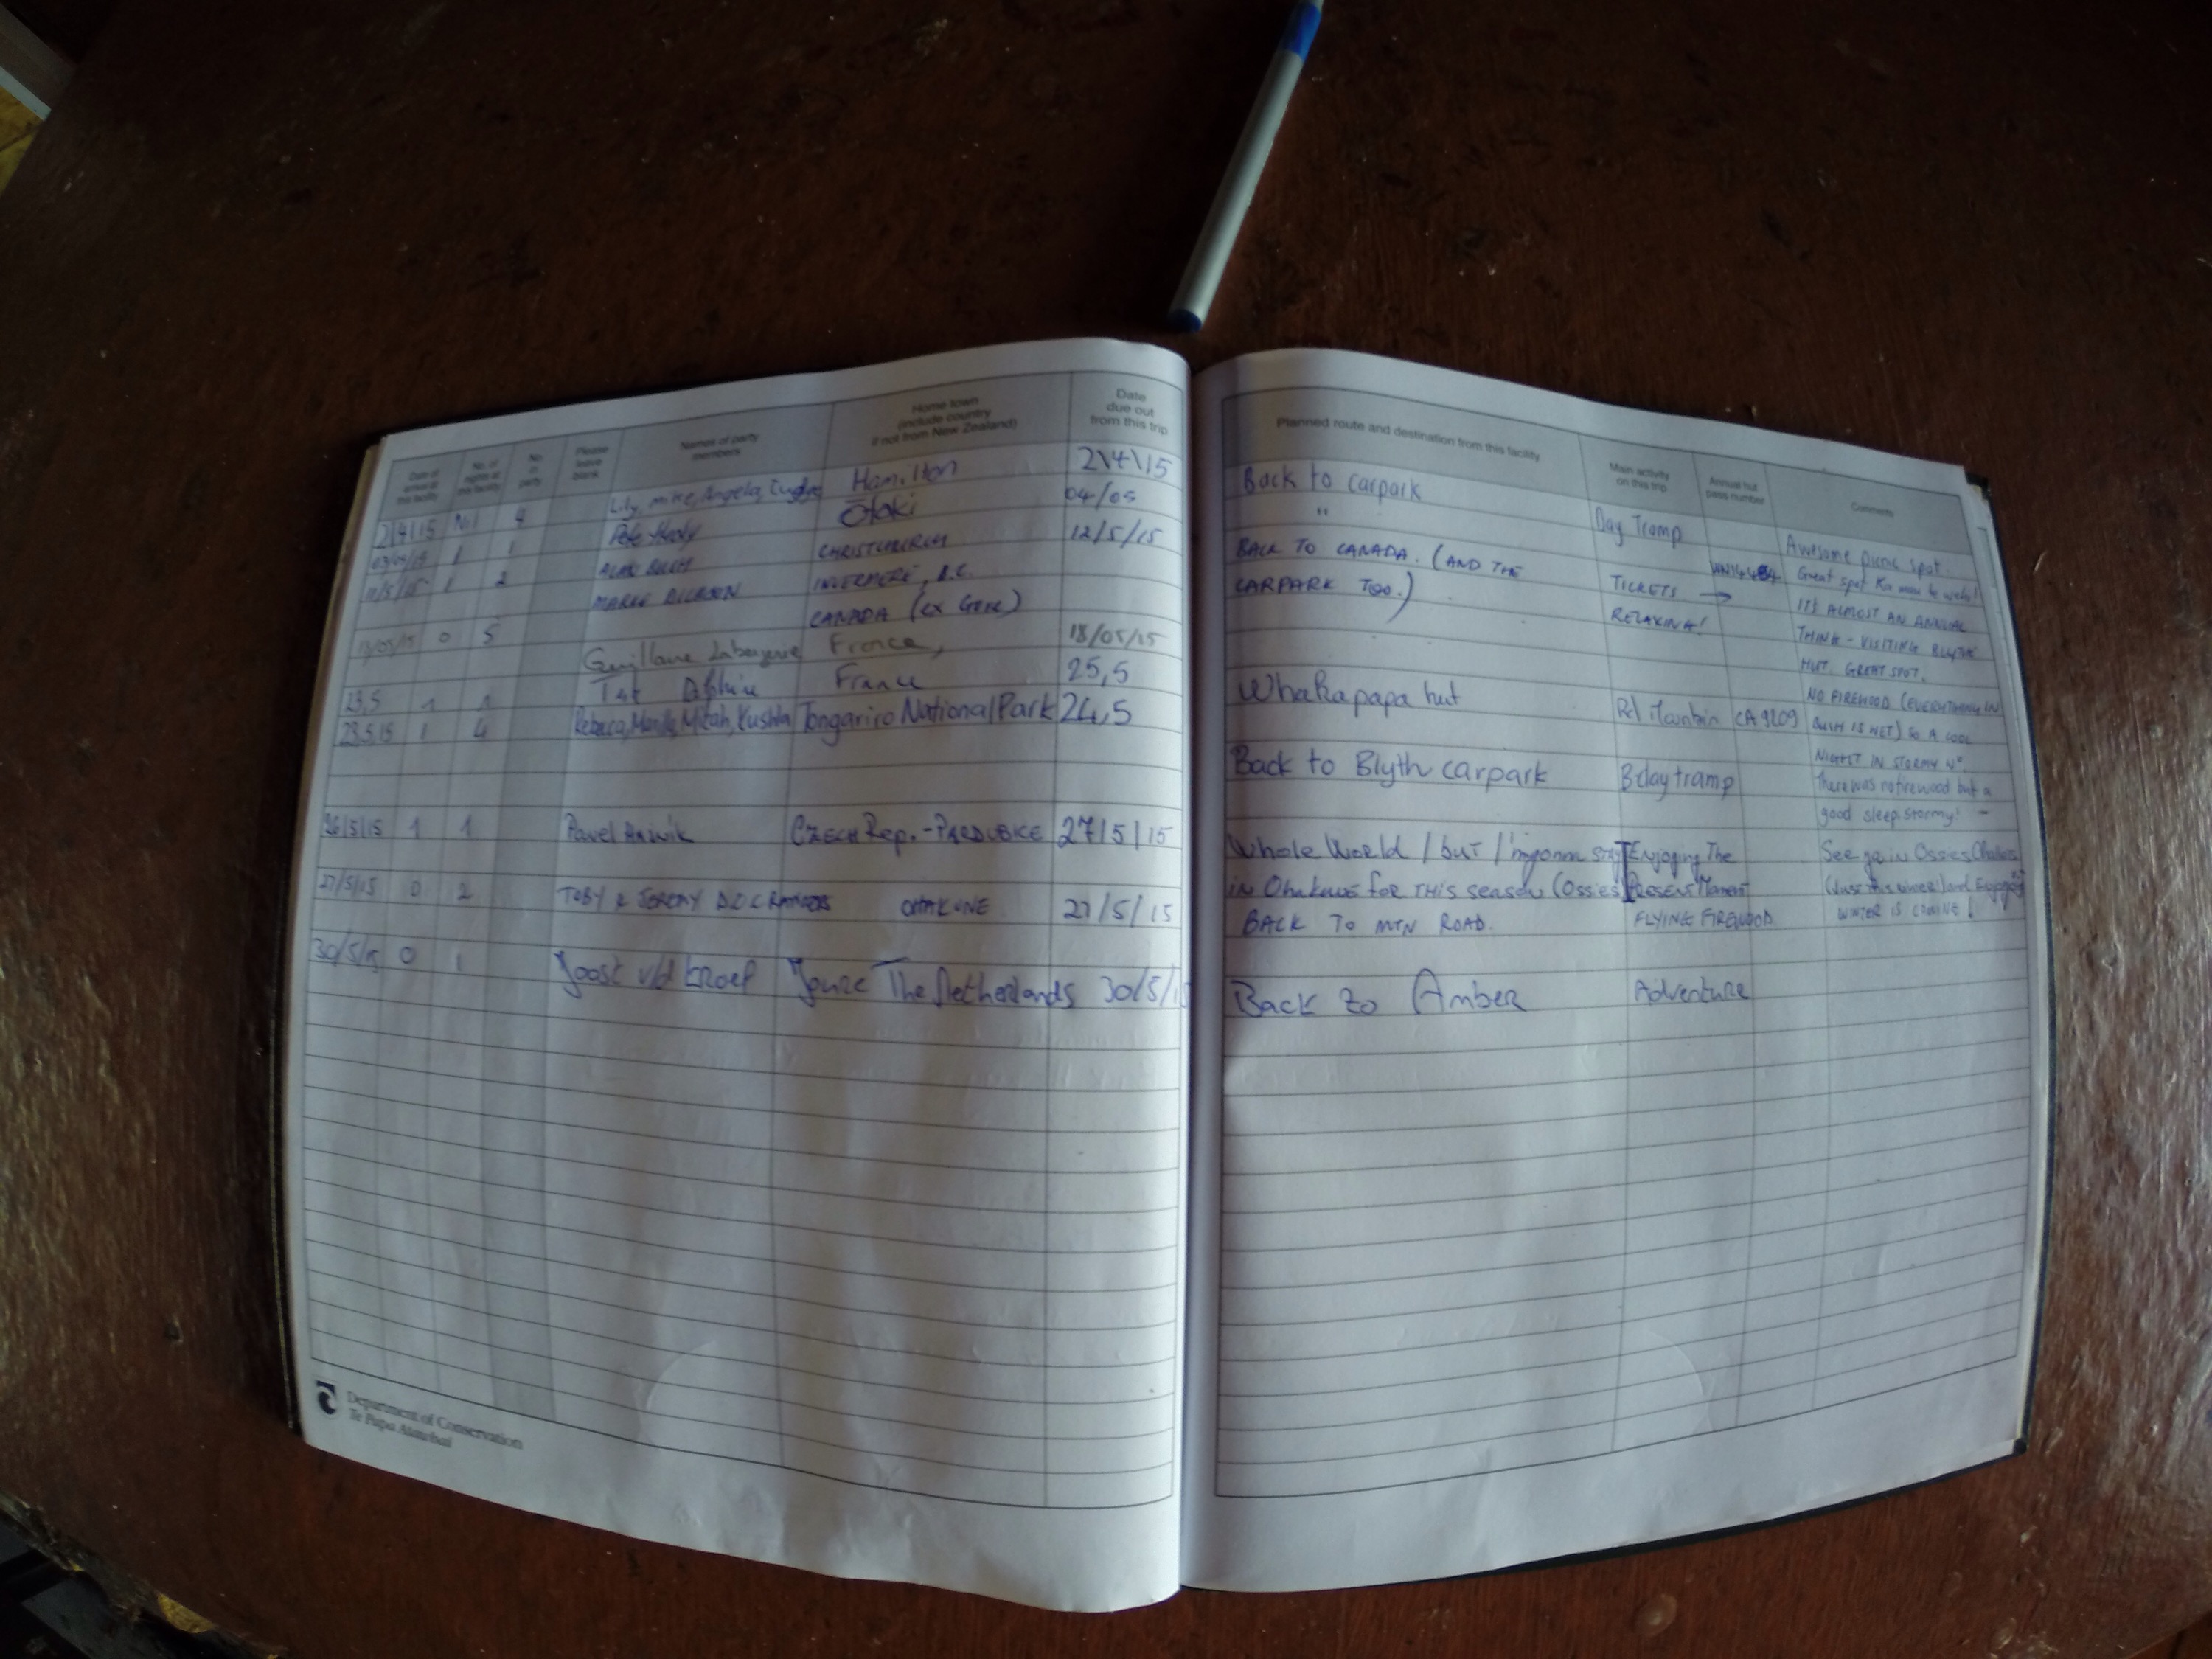 Date of arrival at this facility
No. of nights at this facility
No. in party
Please leave blank
Names of party members
Home town (include country if not from New Zealand)
Date due out from this trip
2\4\15 Nil 4 Lily, Mike, Angela, Hamilton 2\4\15
03/05/15 1 1 Pete Ōtaki 04/05
11/5/15 1 2 ALAN CHRISTCHURCH 12/5/15
MARK DICKSON INVERMERE, B.C.
CANADA (EX
0 5 France, 18/05/15
23,5 1 1 France 25,5
23.5.15 1 4 Rebeca, Micah, Kushla Tongariro National Park 24,5
26/5/15 1 1 Pavel CZECH Rep. - PARDUBICE 27/5/15
27/5/15 0 2 TOBY & JEREMY D.O.C RANGERS OHAKUNE 27/5/15
30/5/15 0 1 Joost v/d Broef Joure The Netherlands 30/5/15
Department of Conservation
Te Papa Atawhai
Planned route and destination from this facility
Main activity on this trip
Annual hut pass number
Comments
Back to carpark Day Tramp Awesome picnic spot.
" Great spot
BACK TO CANADA. (AND THE TICKETS → IT'S ALMOST AN ANNUAL
CARPARK TOO.) RELAXING! THING - VISITING BLYTH
HUT. GREAT SPOT.
Whakapapa hut Mountain CA9209 NO FIREWOOD (EVERYTHING IN
BUSH IS WET) SO A COOL
NIGHT IN STORMY
Back to Blyth carpark tramp There was no firewood but a
good sleep. Stormy!
Whole World / but I'm gonna stay Enjoying The See ya in Ossies Ohakune
in Ohakune for THIS season (Ossies) PRESENT Moment (JUST THIS WINTER) and
BACK TO MTN ROAD. FLYING FIREWOOD WINTER IS COMING!
Back to Amber Adventure